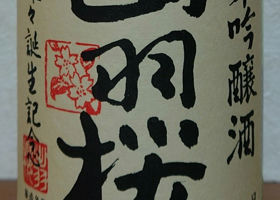 吟醸酒
出羽桜
々誕生記念